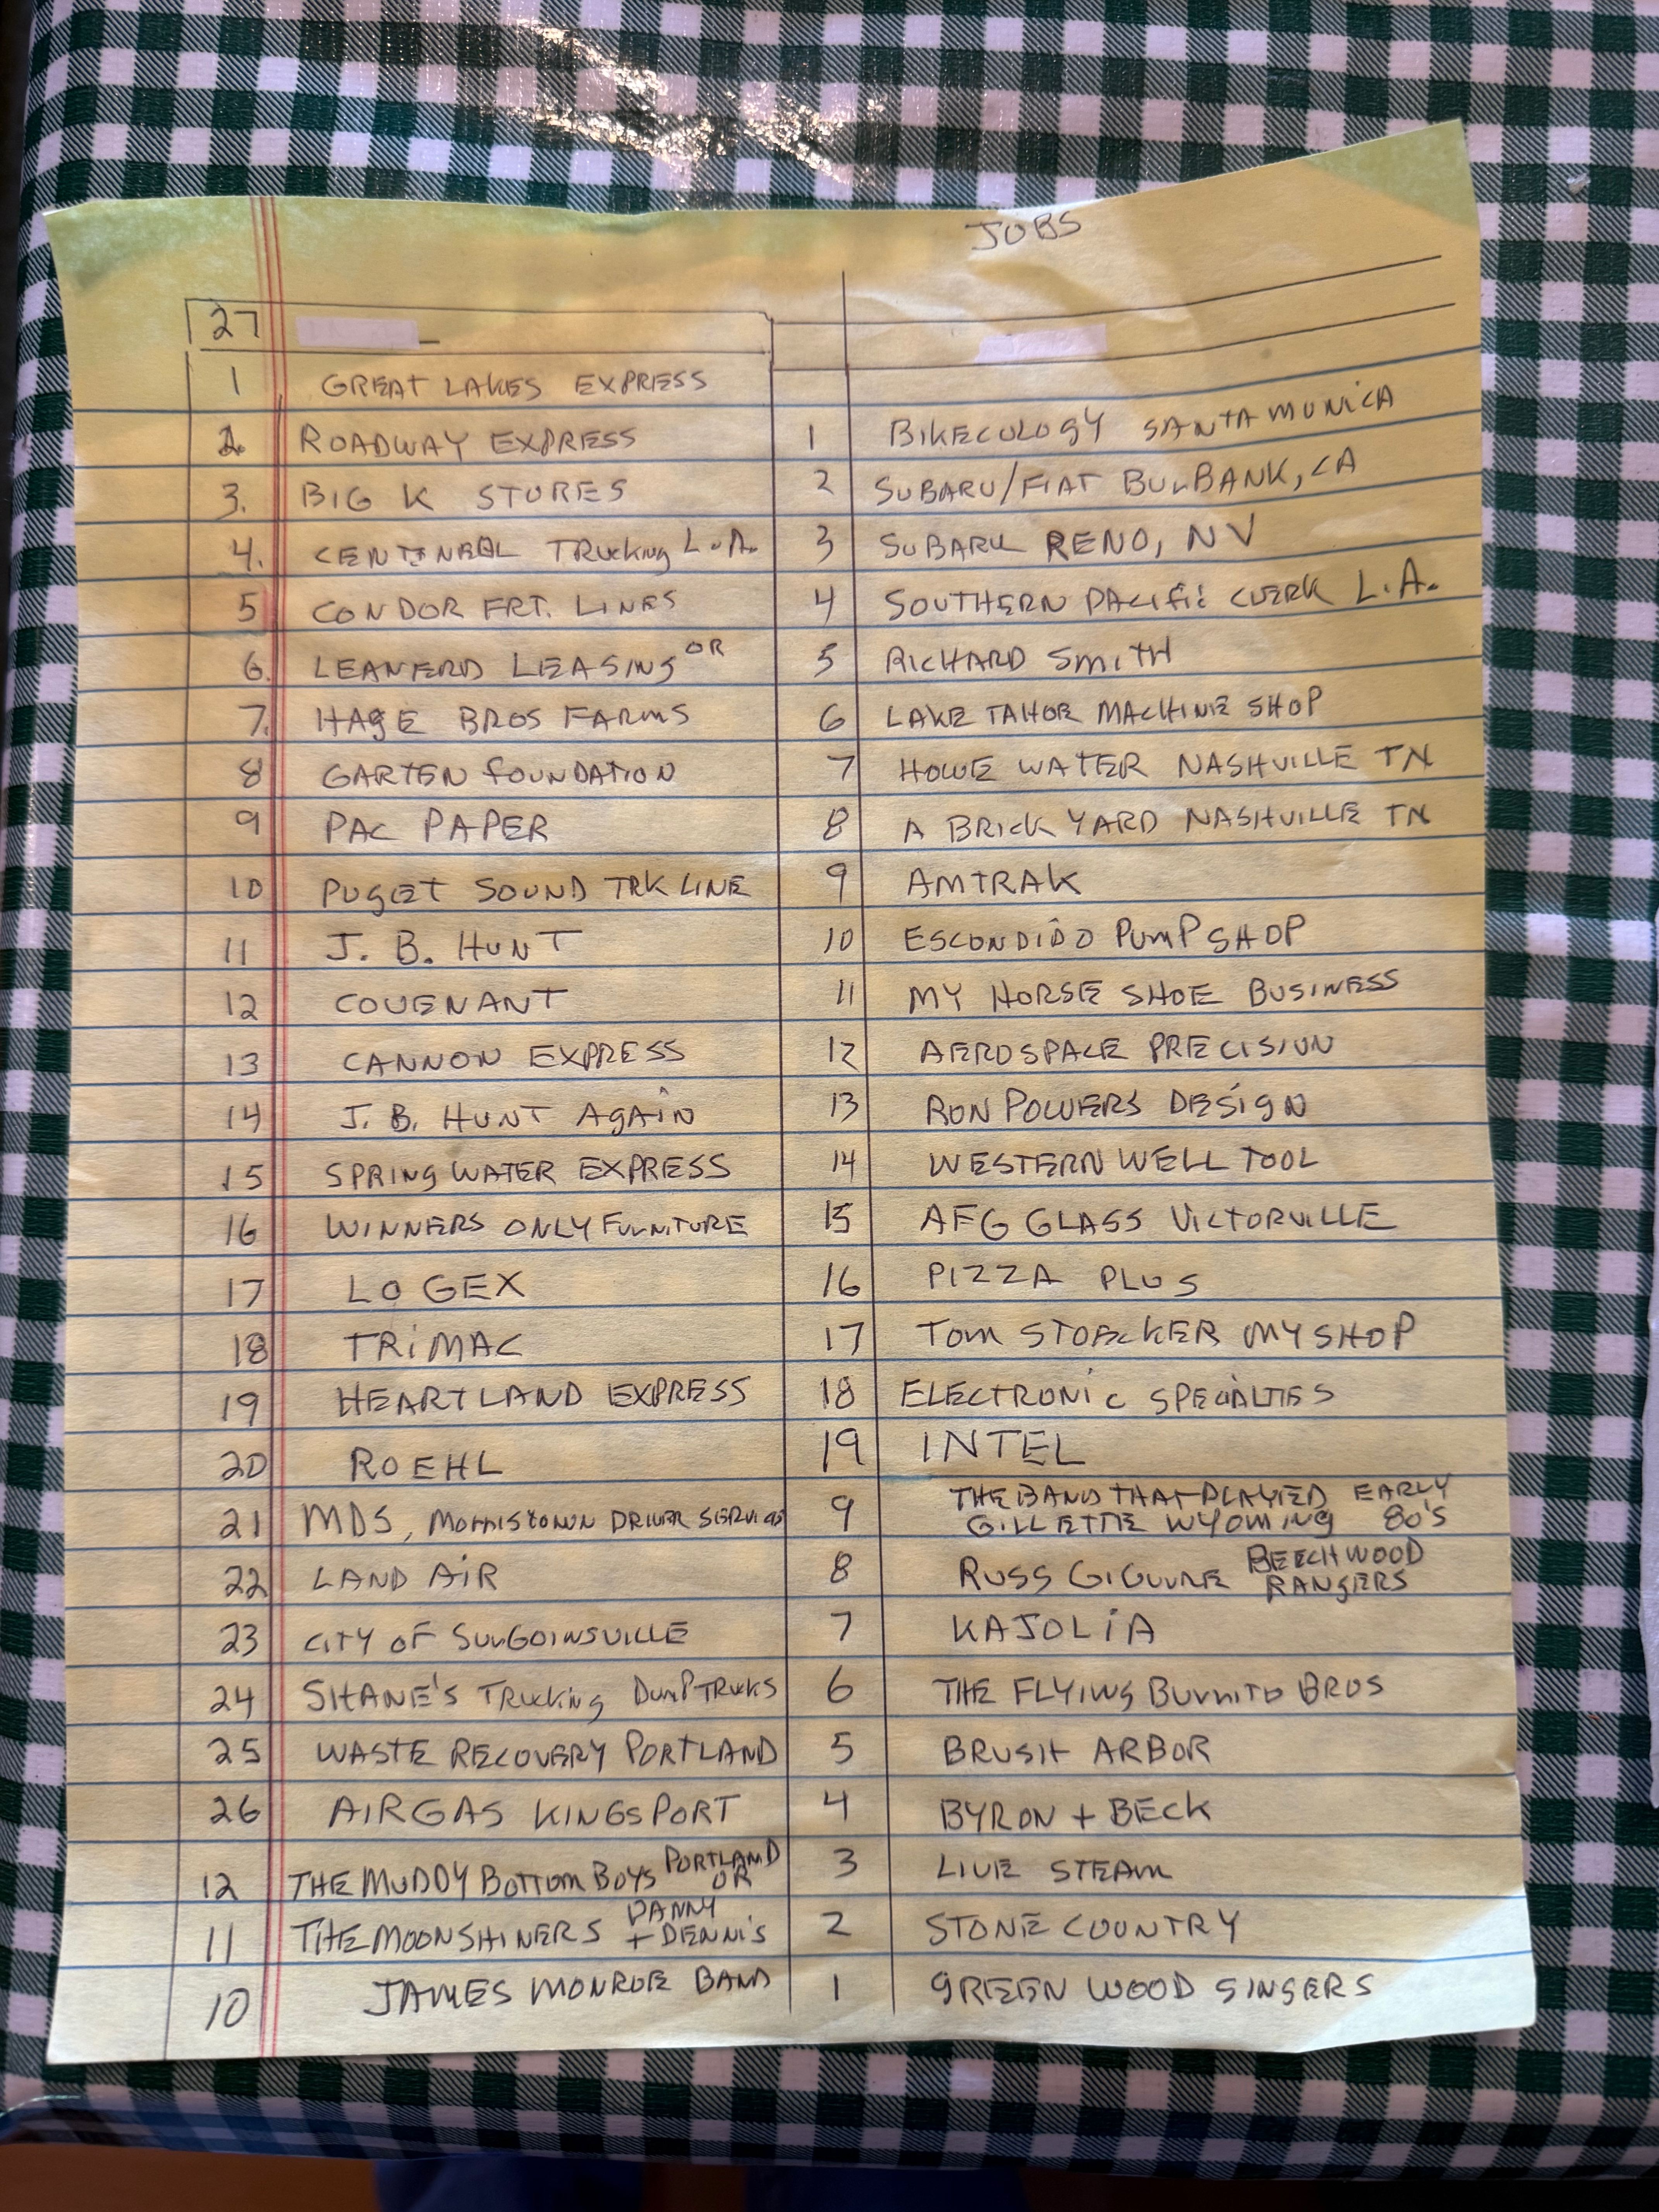 JOBS
27
1 GREAT LAKES EXPRESS
2. ROADWAY EXPRESS
3. BIG K STORES
4. TRUCKING L.A.
5 CONDOR FRT. LINES
6. LEANERD LEASING OR
7. HAGE BROS FARMS
8 GARTEN FOUNDATION
9 PAC PAPER
10 PUGET SOUND TRK LINE
11 J. B. HUNT
12 COVENANT
13 CANNON EXPRESS
14 J. B. HUNT AGAIN
15 SPRING WATER EXPRESS
16 WINNERS ONLY FURNITURE
17 LOGEX
18 TRIMAC
19 HEARTLAND EXPRESS
20 ROEHL
21 MDS, MORRISTOWN DRIVER SERVICES
22 LAND AIR
23 CITY OF SURGOINSVILLE
24 SHANE'S TRUCKING DUMPTRUCKS
25 WASTE RECOVERY PORTLAND
26 AIRGAS KINGSPORT
12 THE MUDDY BOTTOM BOYS PORTLAND OR
11 THE MOONSHINERS DANNY + DENNIS
10 JAMES MONROE BAND
1 BIKECOLOGY SANTA MONICA
2 SUBARU/FIAT BURBANK, CA
3 SUBARU RENO, NV
4 SOUTHERN PACIFIC CLERK L.A.
5 RICHARD SMITH
6 LAKE TAHOE MACHINE SHOP
7 HOWE WATER NASHVILLE TN
8 A BRICK YARD NASHVILLE TN
9 AMTRAK
10 ESCONDIDO PUMP SHOP
11 MY HORSE SHOE BUSINESS
12 AEROSPACE PRECISION
13 RON POWERS DESIGN
14 WESTERN WELL TOOL
15 AFG GLASS VICTORVILLE
16 PIZZA PLUS
17 TOM STOECKER MY SHOP
18 ELECTRONIC SPECIALTIES
19 INTEL
9 THE BAND THAT PLAYED EARLY
GILLETTE WYOMING 80'S
8 RUSS GIGUURE BEECHWOOD RANGERS
7 KAJOLIA
6 THE FLYING BURRITO BROS
5 BRUSH ARBOR
4 BYRON + BECK
3 LIVE STEAM
2 STONE COUNTRY
1 GREEN WOOD SINGERS